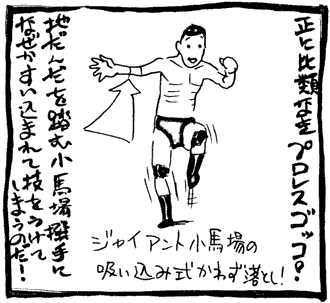 正に比類なきプロレスゴッコ!
地だんだを踏む小馬場選手に
なぜかすい込まれて技をうけて
しまうのだ!
ジャイアント小馬場の
吸い込み式かわず落とし!